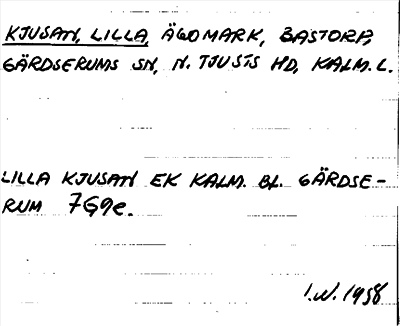 KJUSAN, LILLA, ÄGOMARK, BASTORP,
GÄRDSERUMS SN, N. TJUSTS HD, KALM. L.
LILLA KJUSAN EK KALM. BL. GÄRDSE-
RUM 7G9e.
I.W. 1958